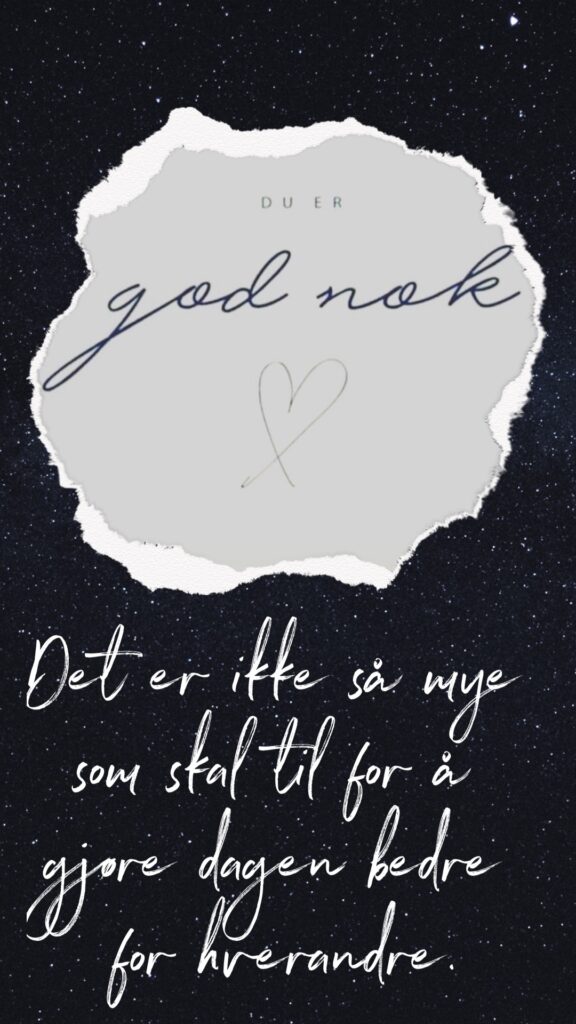 DU ER
god nok
Det er ikke så mye
som skal til for å
gjøre dagen bedre
for hverandre.